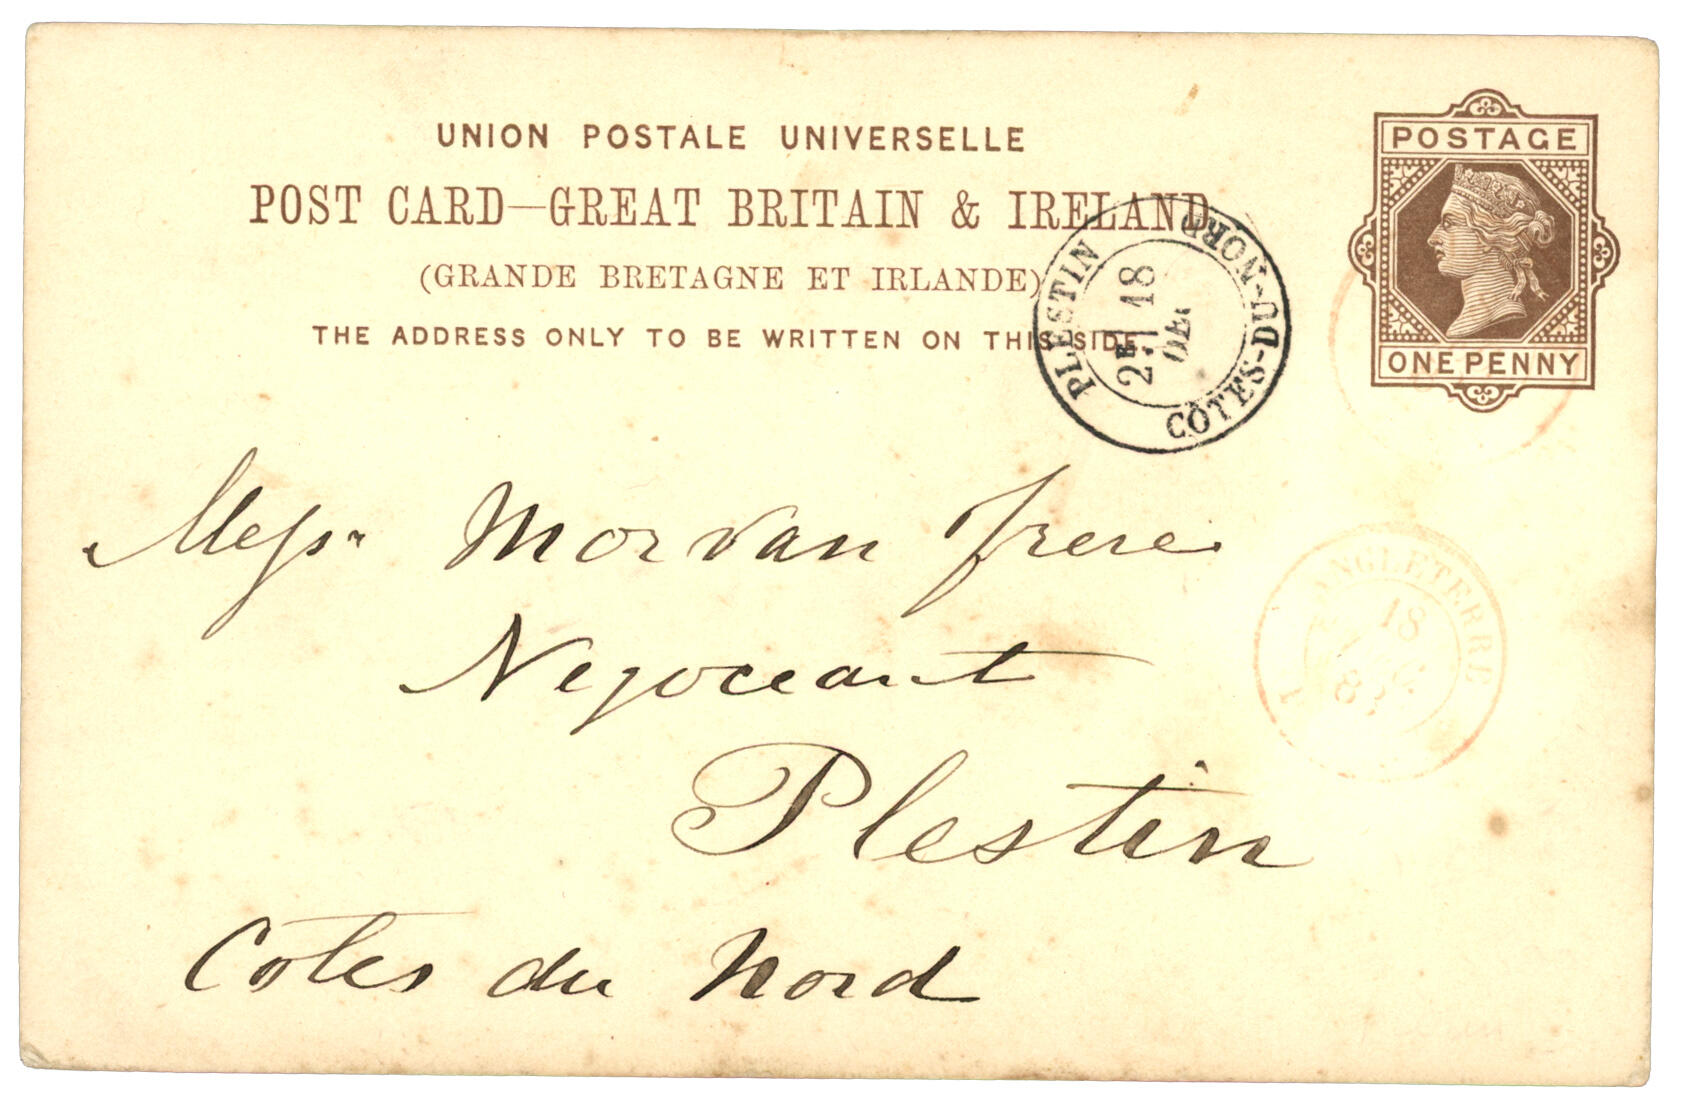 UNION POSTALE UNIVERSELLE
POST CARD—GREAT BRITAIN & IRELAND
(GRANDE BRETAGNE ET IRLANDE)
THE ADDRESS ONLY TO BE WRITTEN ON THIS SIDE.
POSTAGE
ONE PENNY
PLESTIN
2E 18
DEC
CÔTES-DU-NORD
ANGLETERRE
18
Messrs Morvan frere
Negoceant
Plestin
Cotes du Nord